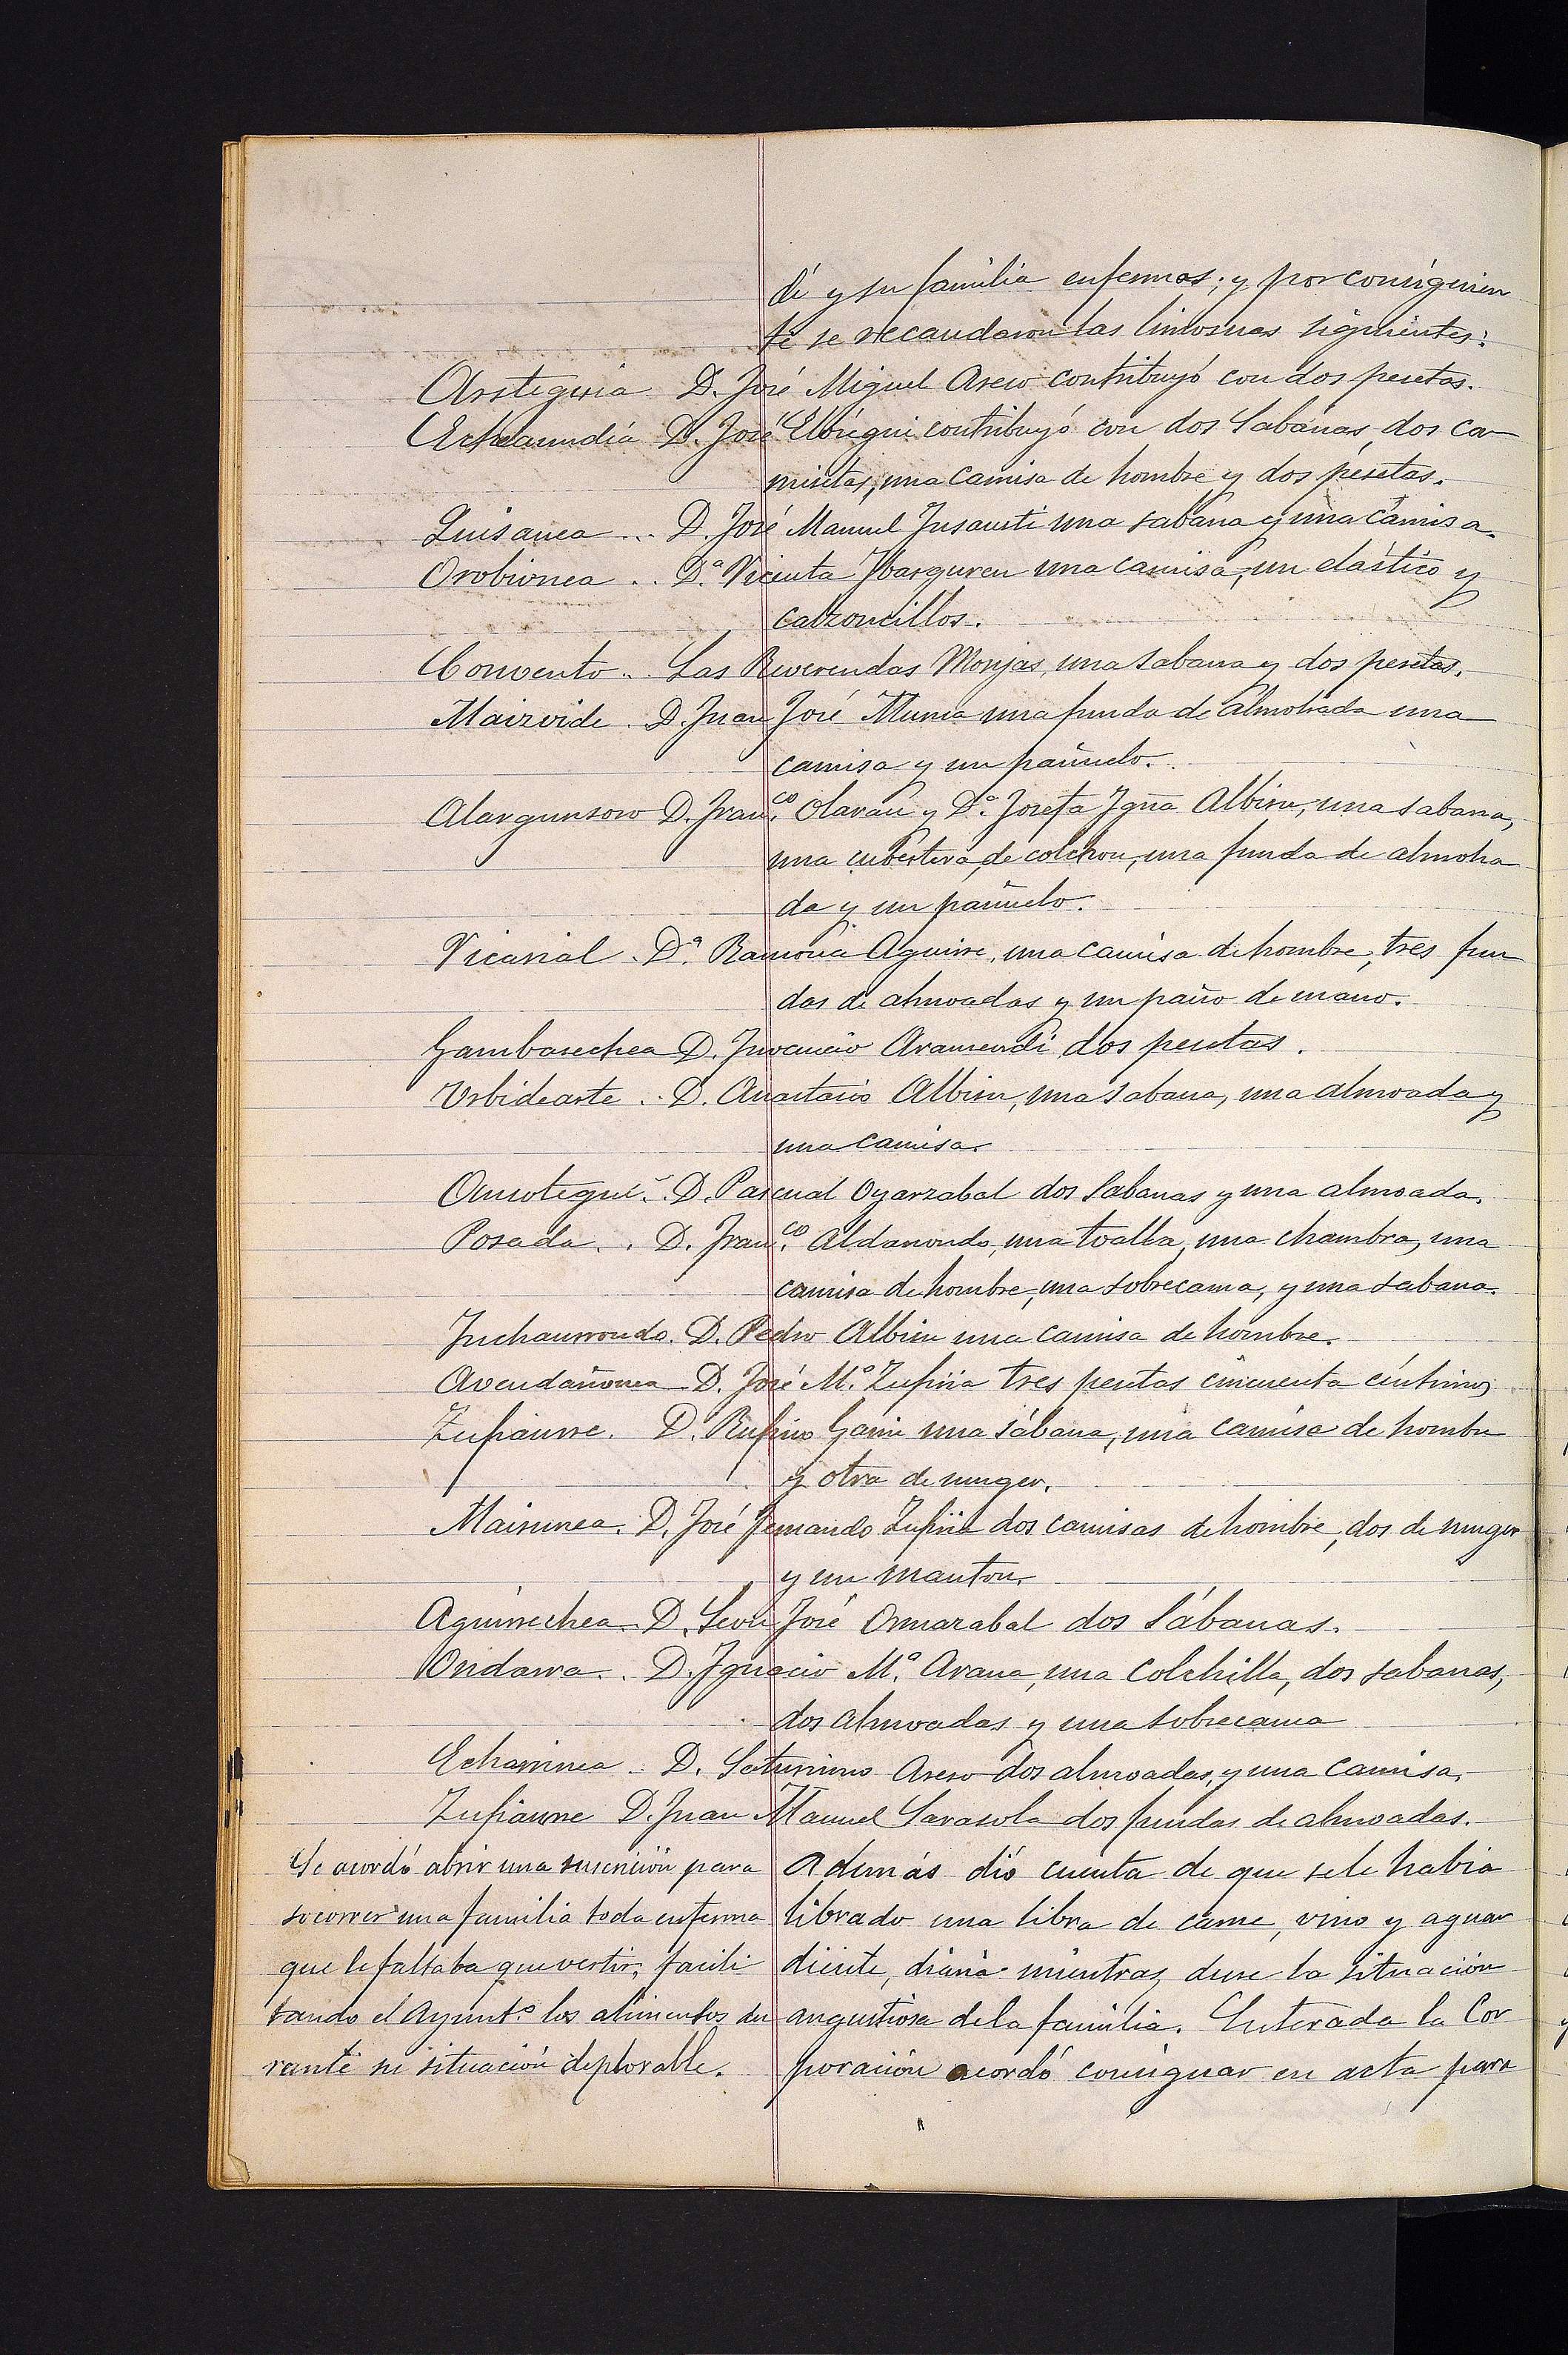 di y su familia enfermos; y por consiguien
te se recaudaron las limosnas siguientes:
Arsteguia D. José Miguel Aseso contribuyó con dos pesetas.
Echeaundia D. José Elósegui contribuyó con dos Sabanas, dos ca-
misetas, una camisa de hombre y dos pesetas.
Luisanea ... D. José Manuel Insausti una sabana y una camisa.
Orobionea .. D.ª Vicenta Ybarguren una camisa, un elástico y
calzoncillos.
Convento .. Las Reverendas Monjas, una sabana y dos pesetas.
Maizvide . D. Juan José Munoa una funda de Almohada una
camisa y un pañuelo.
Alargunsoro D. Fran.co Olarán y D.ª Josefa Ygn.a Albisu, una sabana,
una cubertera, de colchon, una funda de almoha
da y un pañuelo.
Vicarial . D.ª Ramona Aguirre, una camisa de hombre, tres fun
das de almoadas y un paño de mano.
Gambarechea D. Inocencio Aramendi dos pesetas.
Urbidearte .. D. Anastasio Albisu, una sabana, una almoada y
una camisa.
Ansotegui .. D. Pascual Oyarzabal dos Sabanas y una almoada.
Posada .. D. Fran.co Aldanondo, una toalla, una chambra, una
camisa de hombre, una sobrecama, y una sabana.
Inchaurrondo. D. Pedro Albisu una camisa de hombre.
Avendañonea D. José M.ª Zufiria tres pesetas cincuenta céntimos
Zufiaurre. D. Rufino Garin una sábana, una camisa de hombre
y otra de muger.
Maisunea. D. José Fernando Zufiria dos camisas de hombre, dos de muger
y un manton.
Aguirrechea. D. Leon José Ormazabal dos Sábanas.
Ondarra .. D. Ygnacio M.ª Arana, una Colchilla, dos sabanas,
dos Almoadas y una sobrecama
Echarrinea .. D. Saturnino Aseso dos almoadas, y una camisa.
Zufiaurre D. Juan Manuel Sarasola dos fundas de almoadas.
Se acordó abrir una suscrición para
socorrer una familia toda enferma
que le faltaba que vestir, facili
tando el Ayunt.º los alimentos du
rante su situación deplorable.
Además dió cuenta de que se le habia
librado una libra de carne, vino y aguar
diente, diaria mientras dure la situación
angustiosa de la familia. Enterada la Cor
poración acordó consignar en acta para